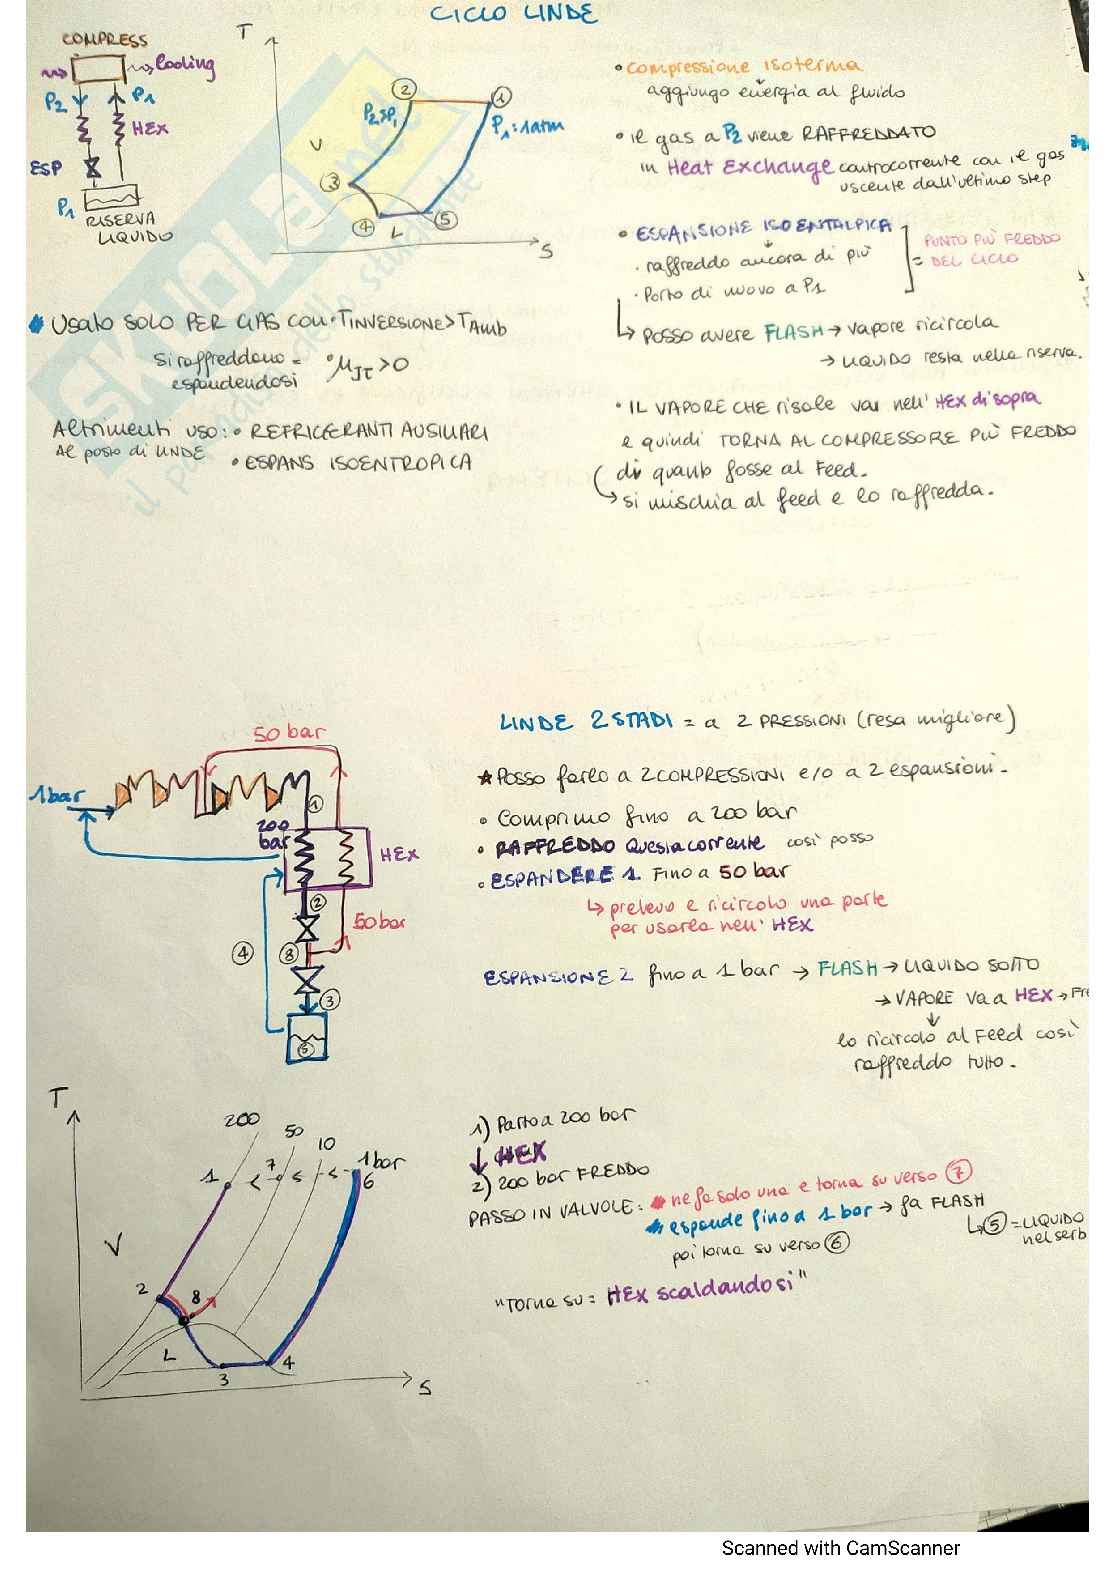 CICLO LINDE
COMPRESS
Cooling
P2
P1
HEX
ESP
P1
RISERVA
LIQUIDO
T
2
1
P2>P1
P1: 1atm
V
3
4
L
5
S
• Compressione isoterma
aggiungo energia al fluido
• il gas a P2 viene RAFFREDDATO
in Heat Exchange controcorrente con il gas
uscente dall'ultimo step
• ESPANSIONE ISOENTALPICA
· raffreddo ancora di più
· Porto di nuovo a P1
= PUNTO PIÙ FREDDO
DEL CICLO
↳ posso avere FLASH → vapore ricircola
→ LIQUIDO resta nella riserva.
• IL VAPORE CHE risale va nell' HEX di sopra
e quindi TORNA AL COMPRESSORE PIÙ FREDDO
di quanto fosse al Feed.
↳ si mischia al feed e lo raffredda.
Usato SOLO PER GAS CON • TINVERSIONE > TAmb
si raffreddano =
espandendosi
• μJT > 0
Altrimenti uso: • REFRIGERANTI AUSILIARI
Al posto di LINDE
• ESPANS ISOENTROPICA
SKUOLA.net
il paradiso dello studente
LINDE 2 STADI = a 2 PRESSIONI (resa migliore)
★ Posso farlo a 2 COMPRESSIONI e/o a 2 espansioni.
• Comprimo fino a 200 bar
• RAFFREDDO Questa corrente così posso
• ESPANDERE 1 Fino a 50 bar
↳ prelevo e ricircolo una parte
per usarla nell' HEX
ESPANSIONE 2 fino a 1 bar → FLASH → LIQUIDO SOTTO
→ VAPORE va a HEX → Fre
↓
lo ricircolo al Feed così
raffreddo tutto.
50 bar
1bar
1
200
bar
HEX
2
50 bar
4
8
3
5
T
200
50
10
1bar
1
7
6
V
2
8
L
3
4
S
1) Parto a 200 bar
↓ HEX
2) 200 bar FREDDO
PASSO IN VALVOLE: ne fa solo una e torna su verso 7
espande fino a 1 bar → fa FLASH
↳ 5 = LIQUIDO
nel serb
poi torna su verso 6
"Torna su = HEX scaldandosi"
Scanned with CamScanner